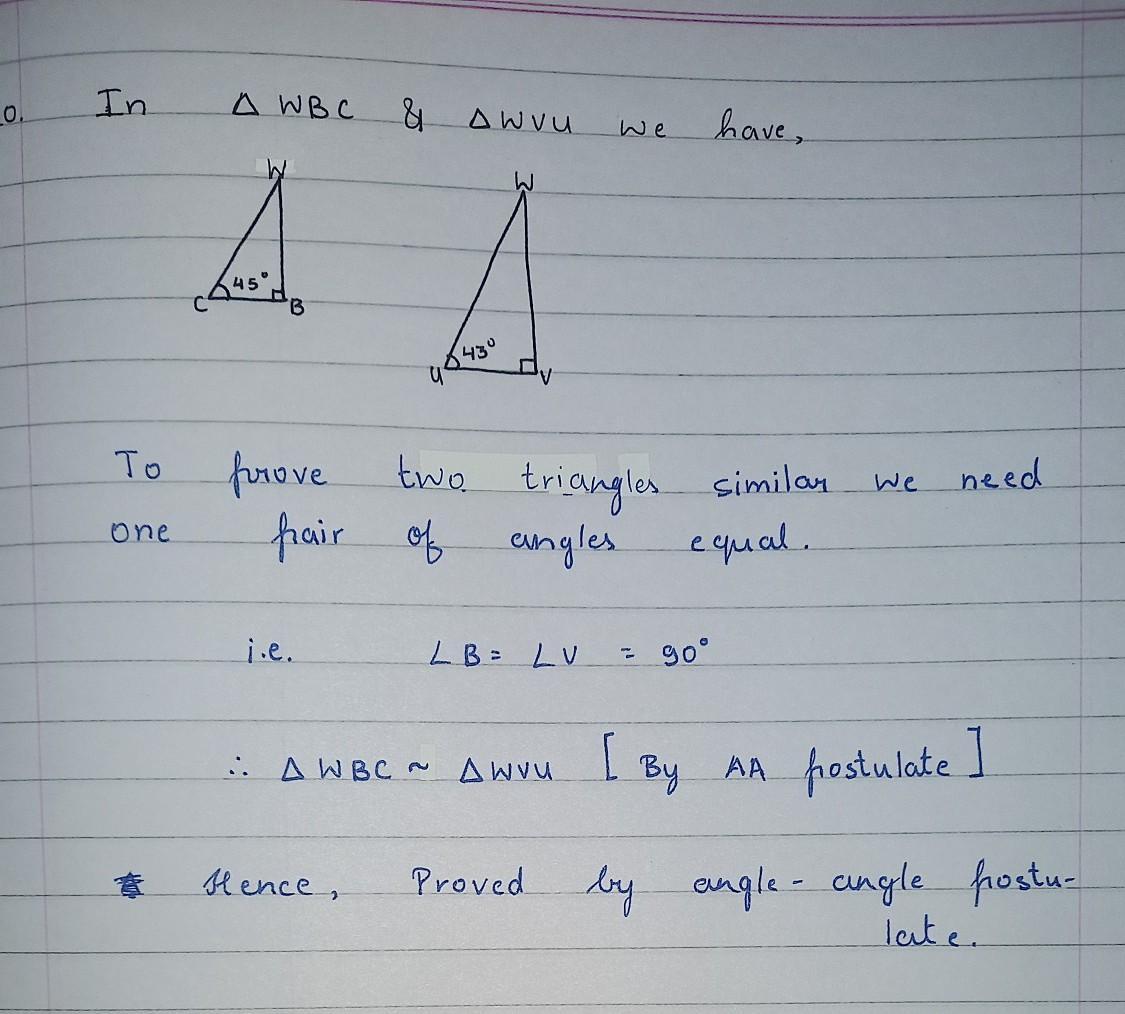 0. In △ WBC & △WVU we have,
W
W
45°
C B
43°
U V
To prove two triangles similar we need
one pair of angles equal.
i.e. ∠B = ∠V = 90°
∴ △WBC ~ △WVU [ By AA postulate ]
Hence, Proved by angle - angle postu-
late.